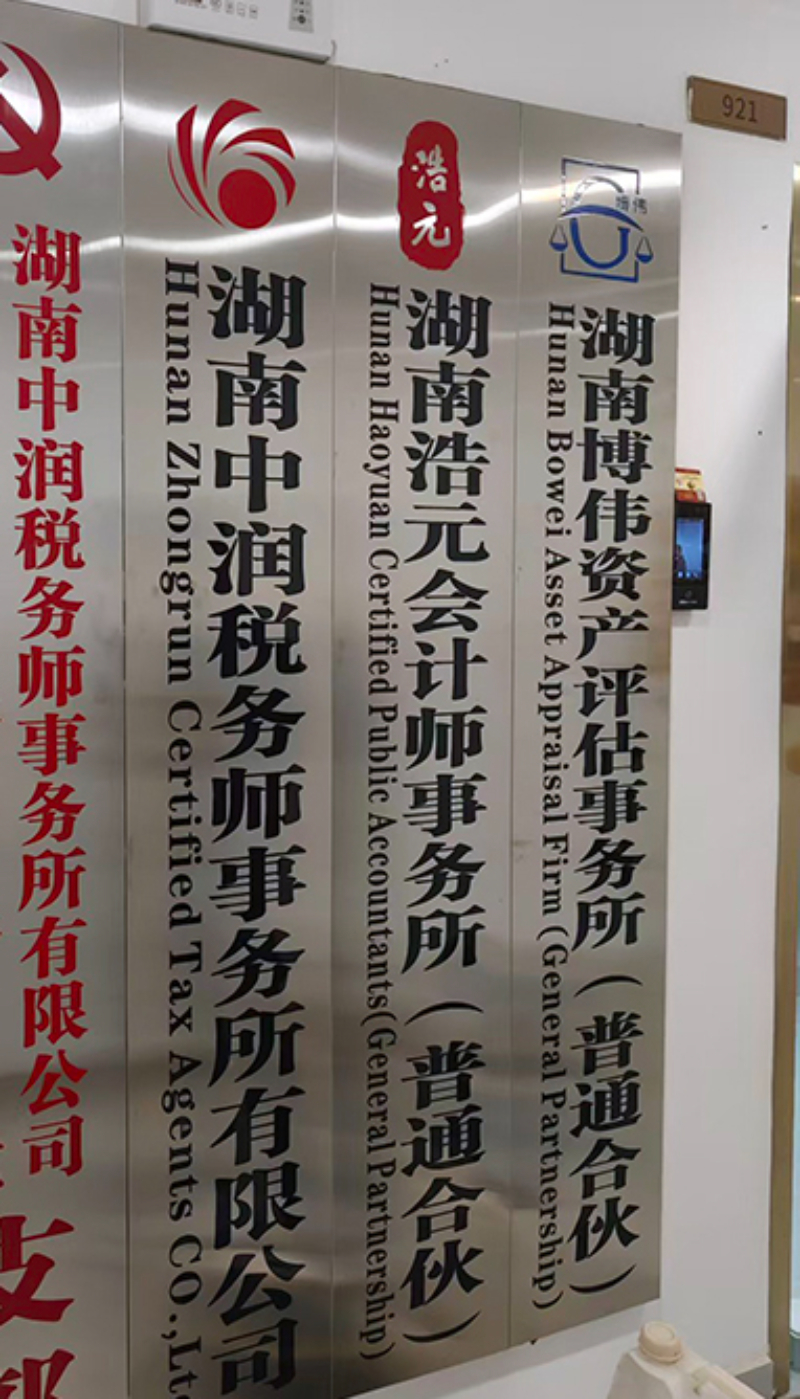 湖南中润税务师事务所有限公司
支部
湖南中润税务师事务所有限公司
Hunan Zhongrun Certified Tax Agents CO.,Ltd
浩元
湖南浩元会计师事务所（普通合伙）
Hunan Haoyuan Certified Public Accountants(General Partnership)
博伟
湖南博伟资产评估事务所（普通合伙）
Hunan Bowei Asset Appraisal Firm (General Partnership)
921